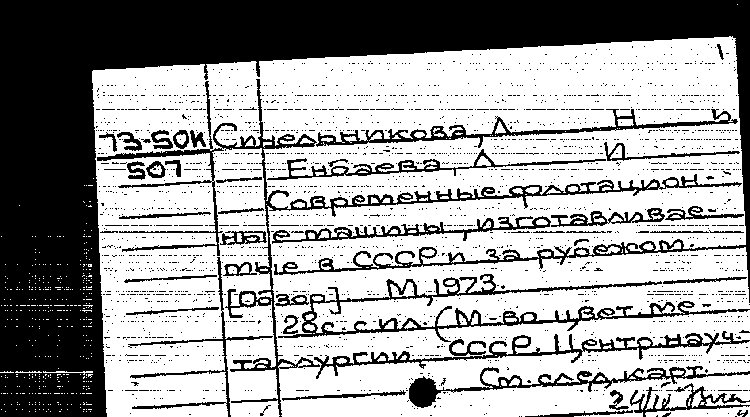 73-50к Синельникова, Л Н и
507 Енбаева, Л И
Современные флотацион-
ные машины, изготавливае-
мые в СССР и за рубежом.
[Обзор]. М, 1973.
28с. с ил. (М-во цвет. ме-
таллургии СССР. Центр. науч-
См. след. карт.